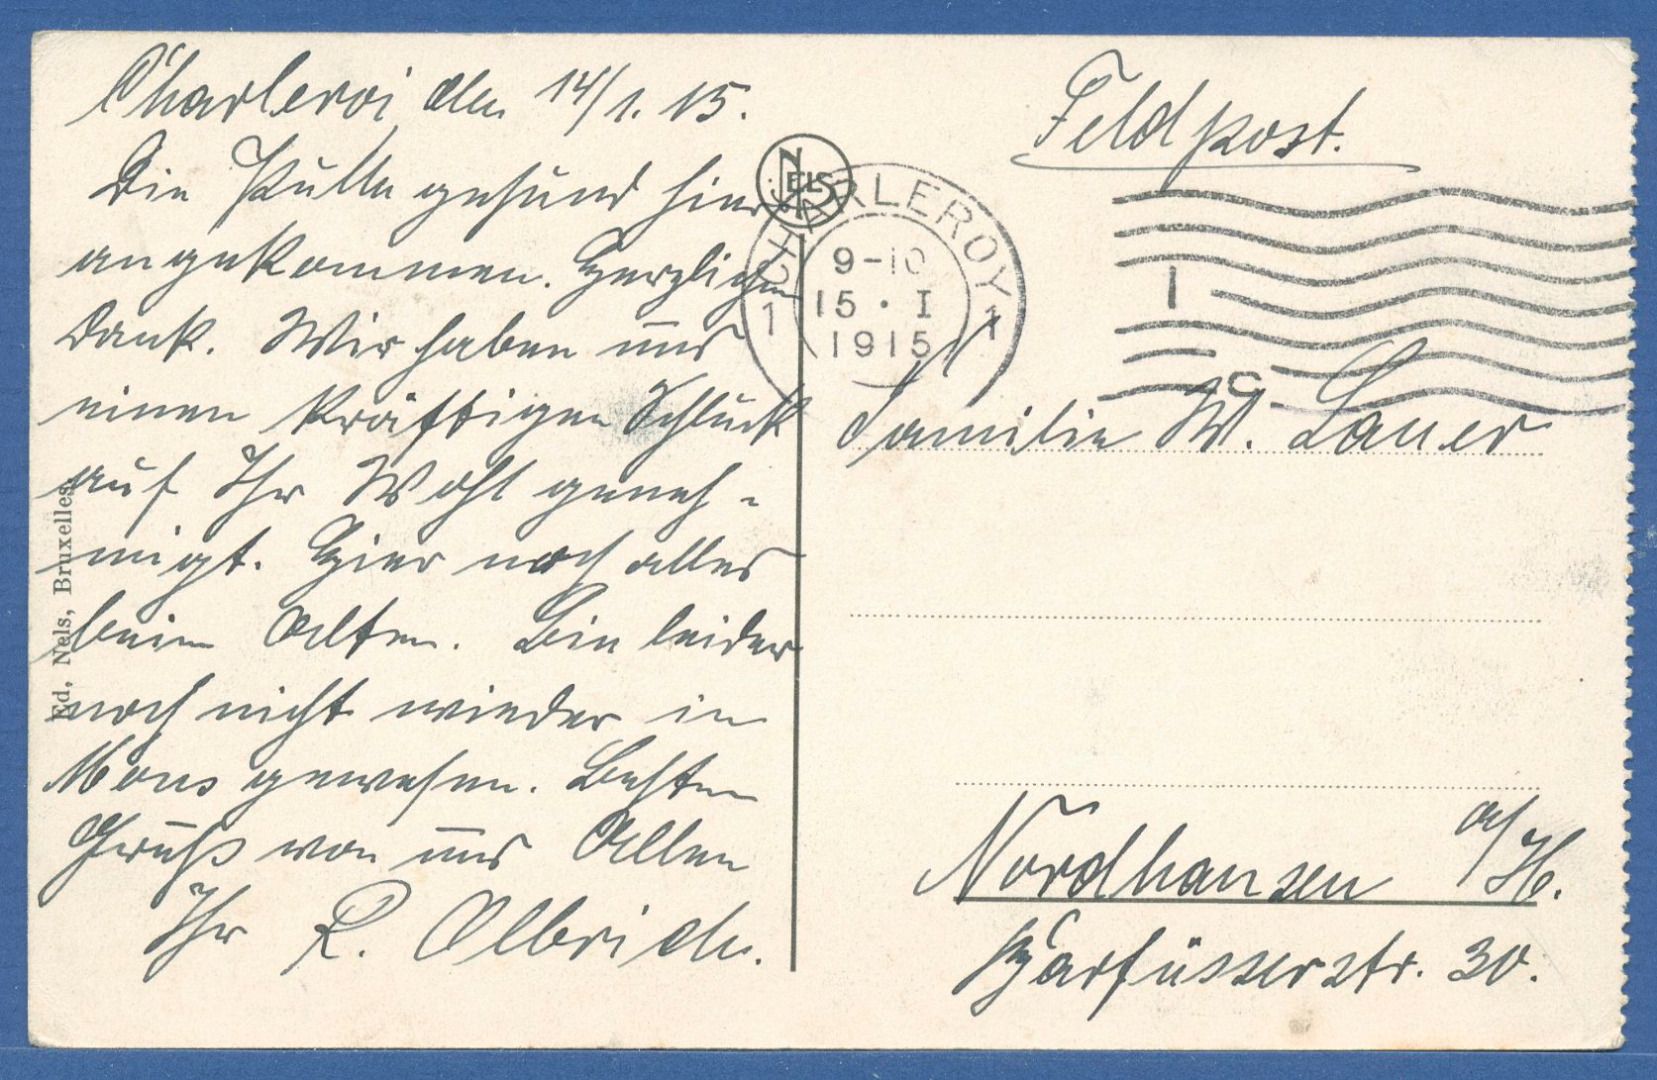 Charleroi den 14/1. 15.
Die Pulle gesund hier
angekommen. Herzlichen
Dank. Wir haben uns
einen kräftigen Schluck
auf Ihr Wohl geneh-
migt. Hier noch alles
beim Alten. Bin leider
noch nicht wieder in
Mons gewesen. Besten
Gruß von uns Allen
Ihr R. Olbrich.
Ed. Nels, Bruxelles
NELS
Feldpost.
CHARLEROY
1 1
9-10
15 · I
1915
Familie W. Lauer
Nordhausen a/H.
Barfüsserstr. 30.